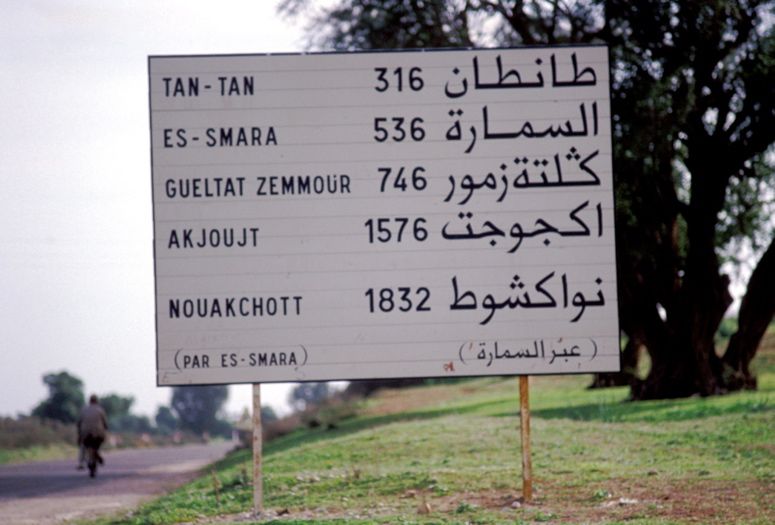 TAN-TAN 316 طانطان
ES-SMARA 536 السمارة
GUELTAT ZEMMOUR 746 كلتة زمور
AKJOUJT 1576 اكجوجت
NOUAKCHOTT 1832 نواكشوط
(PAR ES-SMARA) (عبر السمارة)